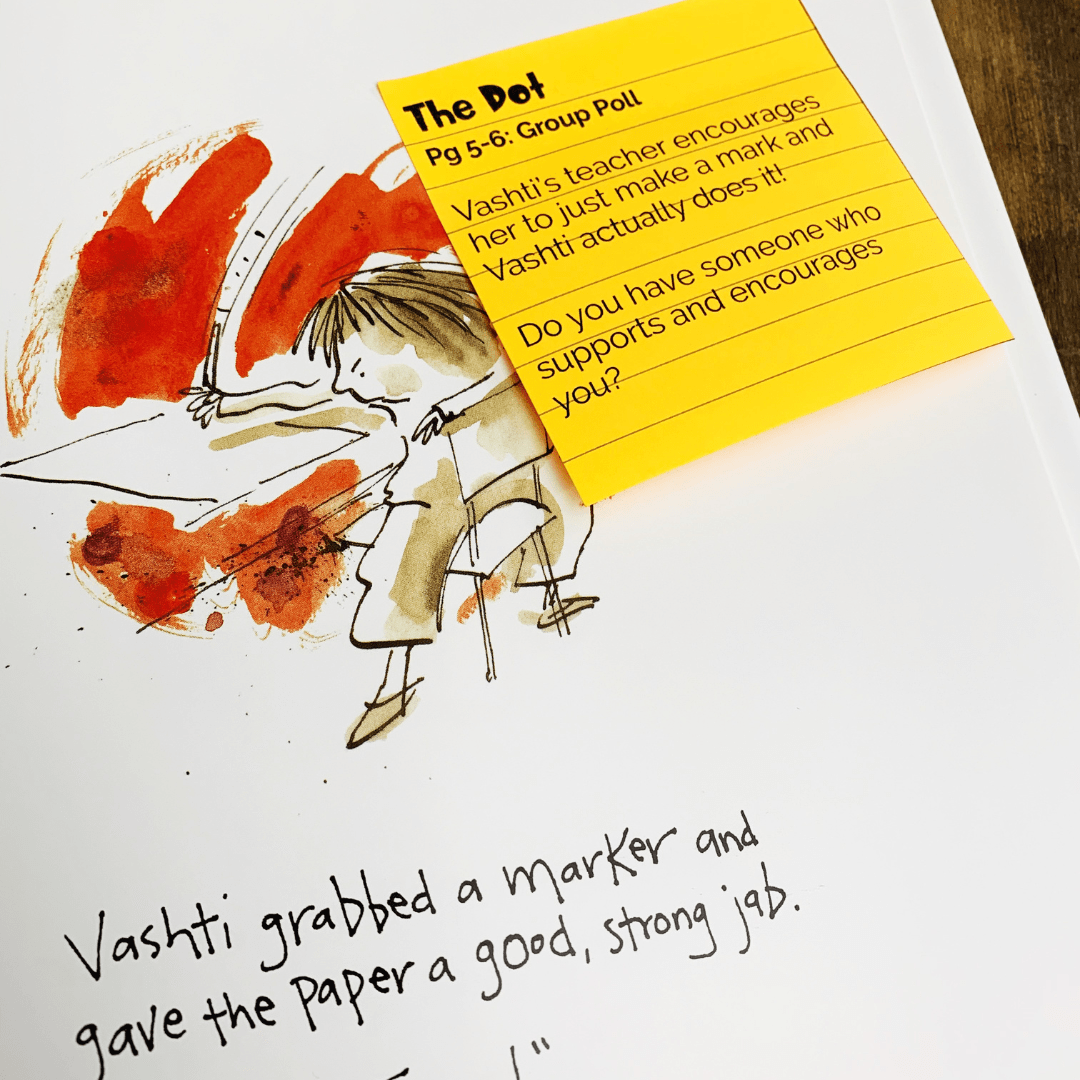 The Dot
Pg 5-6: Group Poll
Vashti's teacher encourages
her to just make a mark and
Vashti actually does it!
Do you have someone who
supports and encourages
you?
Vashti grabbed a marker and
gave the paper a good, strong jab.